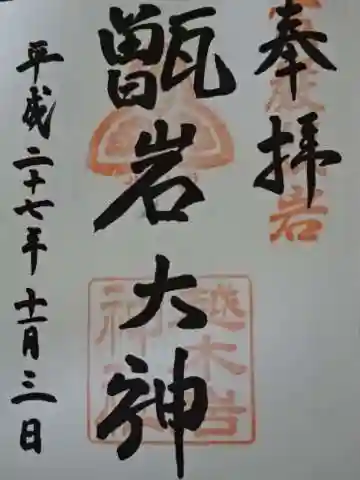 奉拝
甑岩大神
平成二十七年十一月三日
越木岩
神社